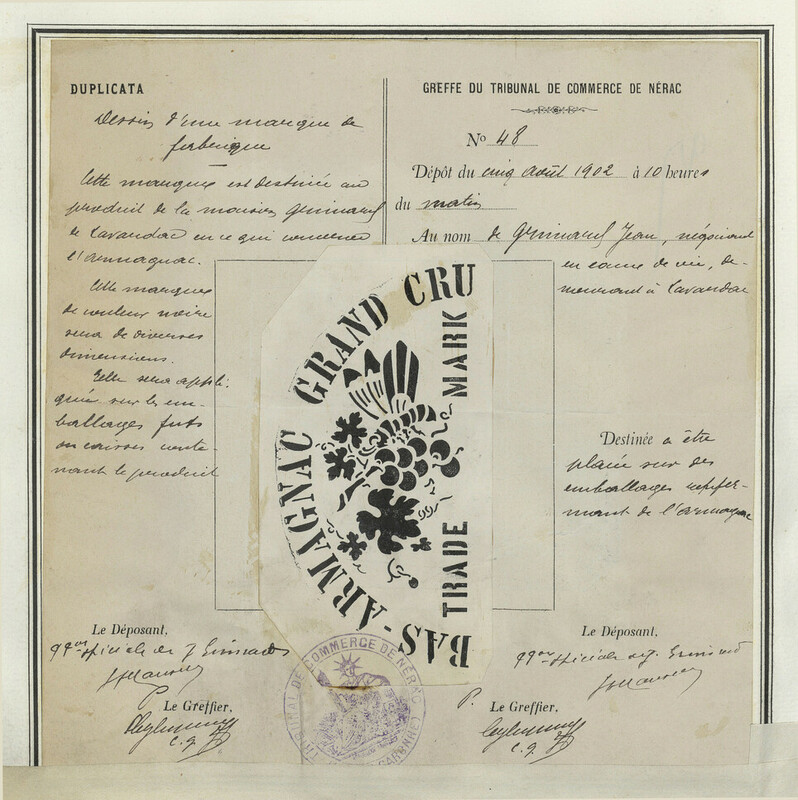 DUPLICATA
Dessin d'une marque de
fabrique
Cette marque est destinée au
produit de la maison Grimard
de Lavardac en ce qui concerne
l'armagnac.
Cette marque
de couleur noire
sera de diverses
dimensions.
Elle sera appli-
quée sur les em-
ballages futs
ou caisses conte-
nant le produit
GREFFE DU TRIBUNAL DE COMMERCE DE NÉRAC
No 48
Dépôt du cinq août 1902 à 10 heures
du matin
Au nom de Grimard Jean, négociant
en eaux de vie, de-
meurant à Lavardac
BAS-ARMAGNAC GRAND CRU
TRADE MARK
Destinée à être
placée sur des
emballages renfer-
mant de l'armagnac
Le Déposant,
Le Greffier,
Le Déposant,
P. Le Greffier,
TRIBUNAL DE COMMERCE DE NÉRAC